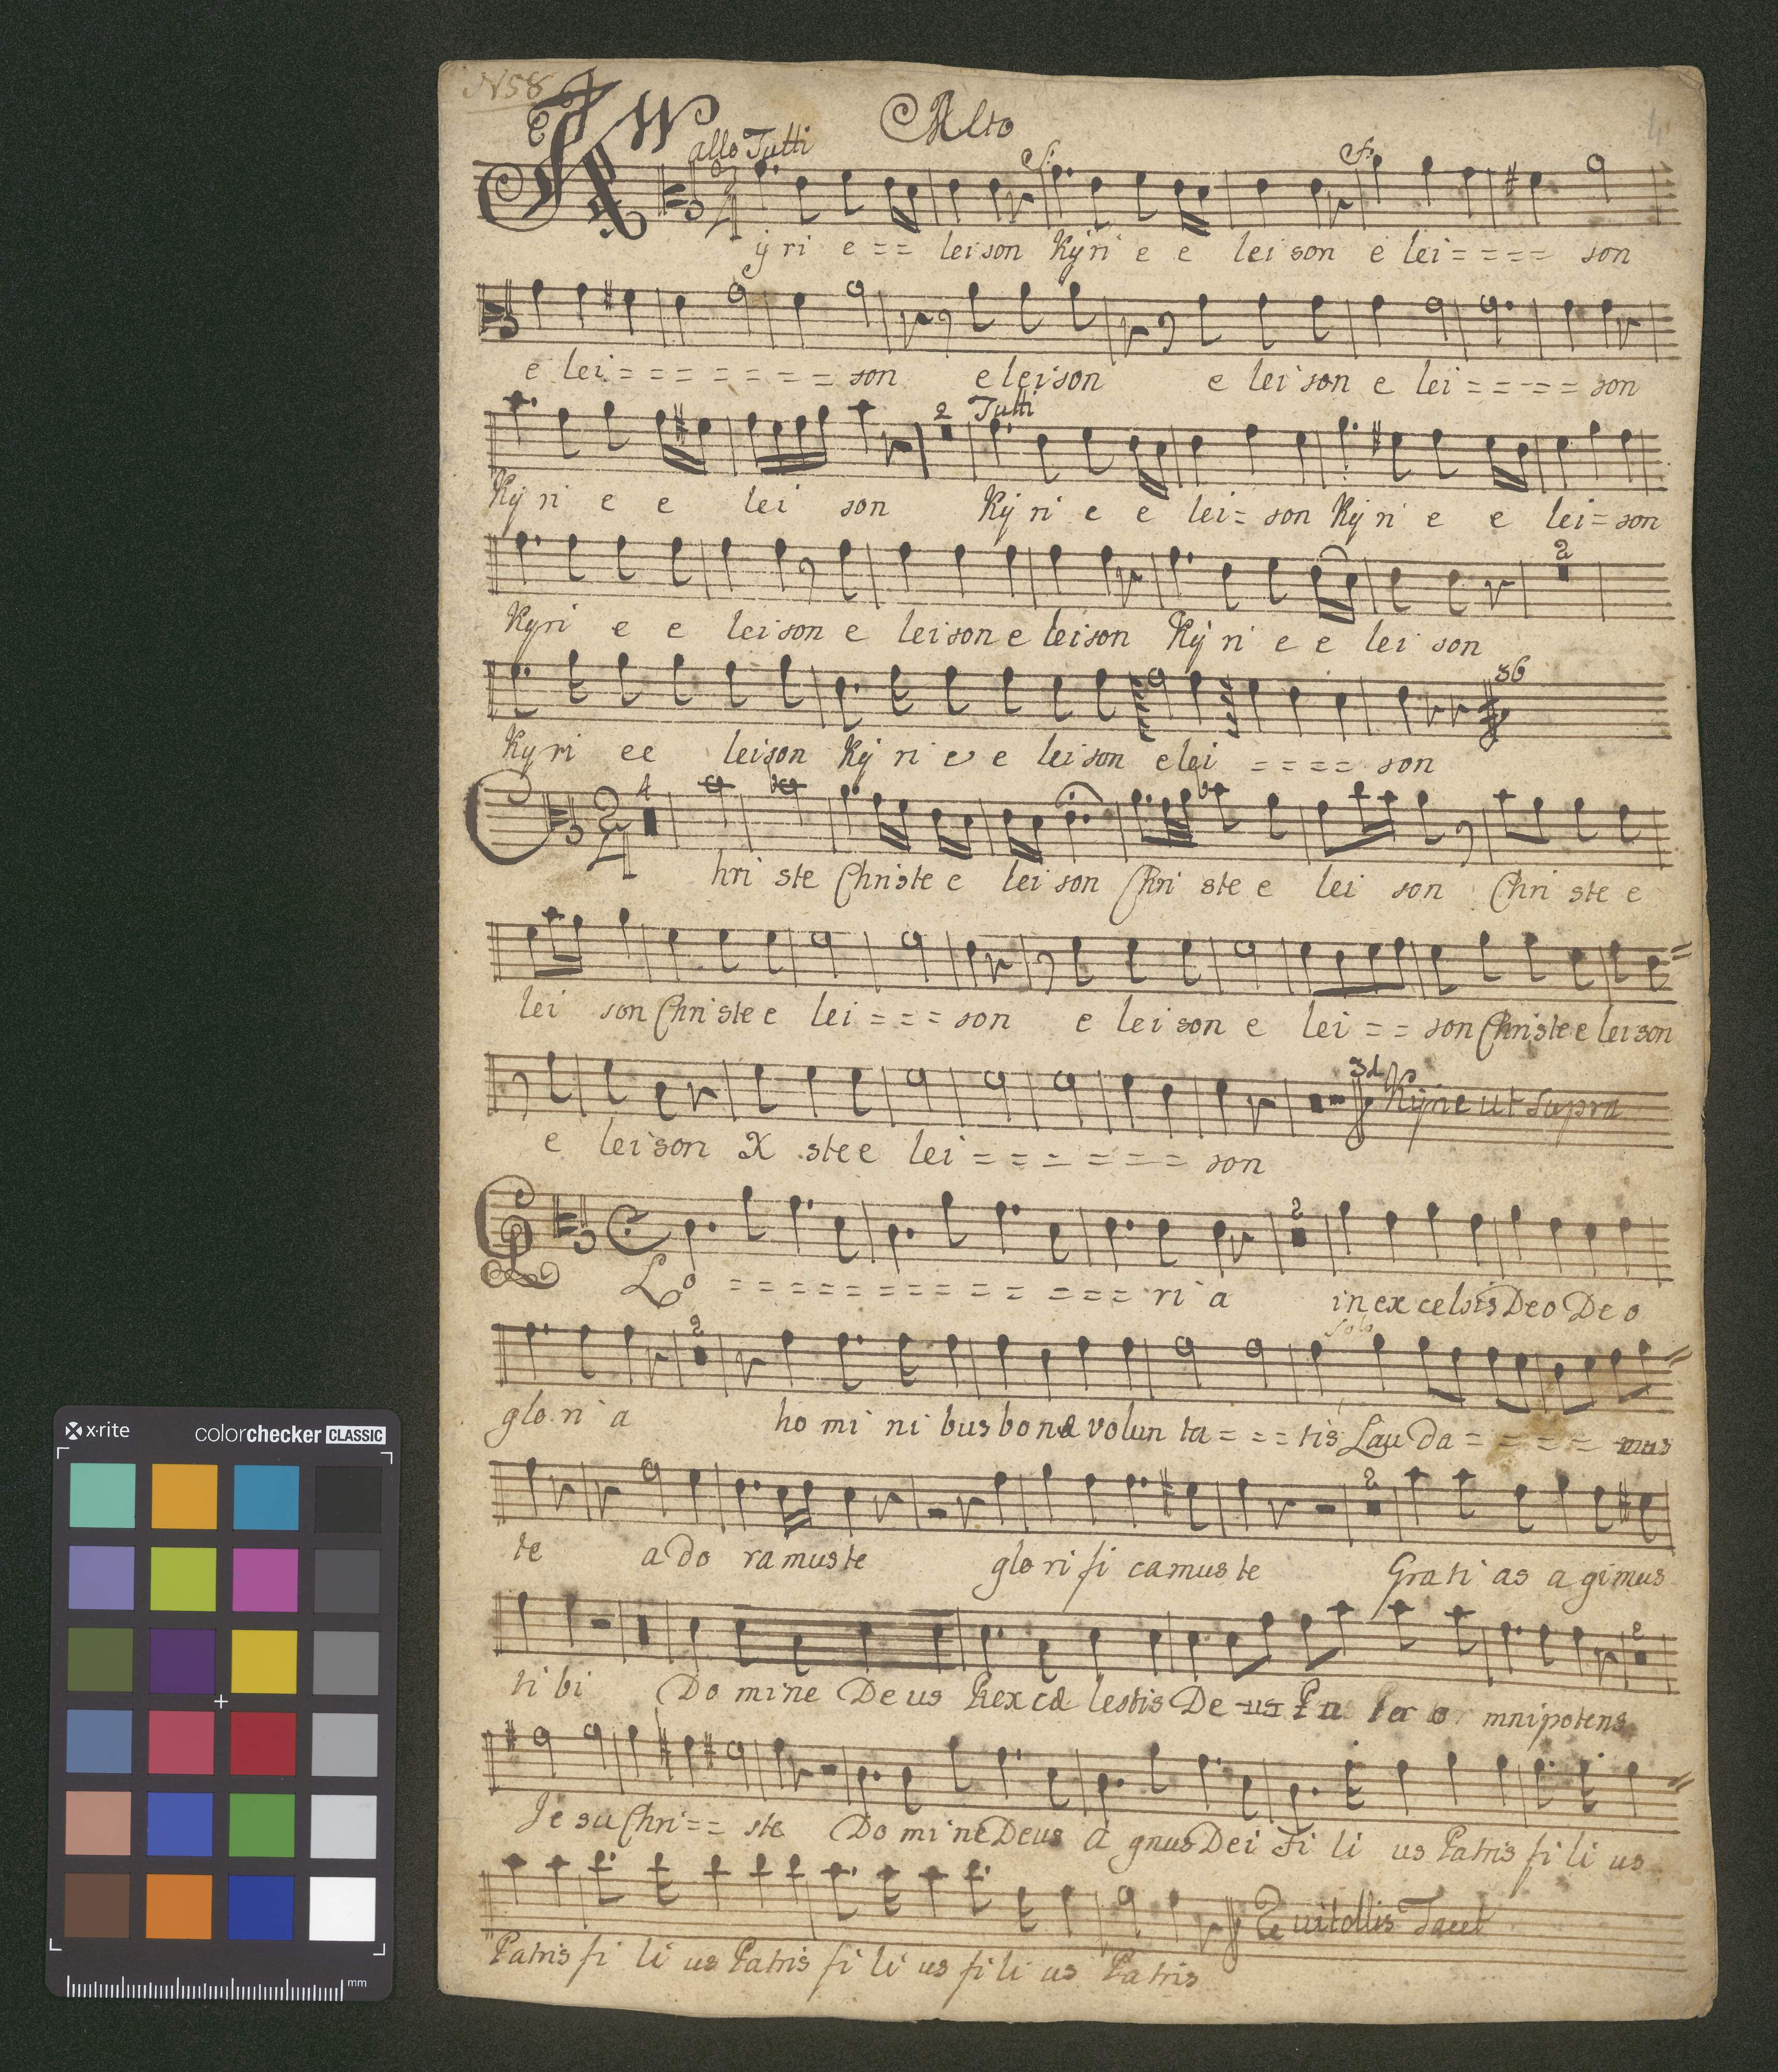 N58
Alto
4
allo Tutti
K ÿ ri e = = lei son Kÿri e e lei son e lei = = = = son
e lei = = = = = = = = son e leison e lei son e lei = = = = = son
2 Tutti
Kÿ ri e e lei son Kÿ ri e e lei = son Kÿ ri e e lei = son
2
Kyri e e lei son e lei son e leison Kÿ ri e e lei son
36
Ky ri ee leison Kÿ ri e e lei son e lei = = = = son
4
C hri ste Christe e lei son Chri ste e lei son Chri ste e
lei son Christe e lei = = = son e lei son e lei = = son Christe e leison
3d Kÿrie ut supra
e leison X ste e lei = = = = = = = son
2
G Lo = = = = = = = = = = = = = ri a in excelsis Deo Deo
2 solo
glo ri a ho mi ni bus bonæ volun ta = = = tis Lau da = = = = = mus
2
te a do ramus te glo ri fi camus te Grati as agimus
2
ti bi Do mine Deus Rex cæ lestis De us Pa ter o mnipotens
Je su Chri = = ste Do mi ne Deus A gnus Dei Fi li us Patris fi li us
Qui tollis Tacet
Patris fi li us Patris fi li us fi li us Patris
x·rite colorchecker CLASSIC
mm